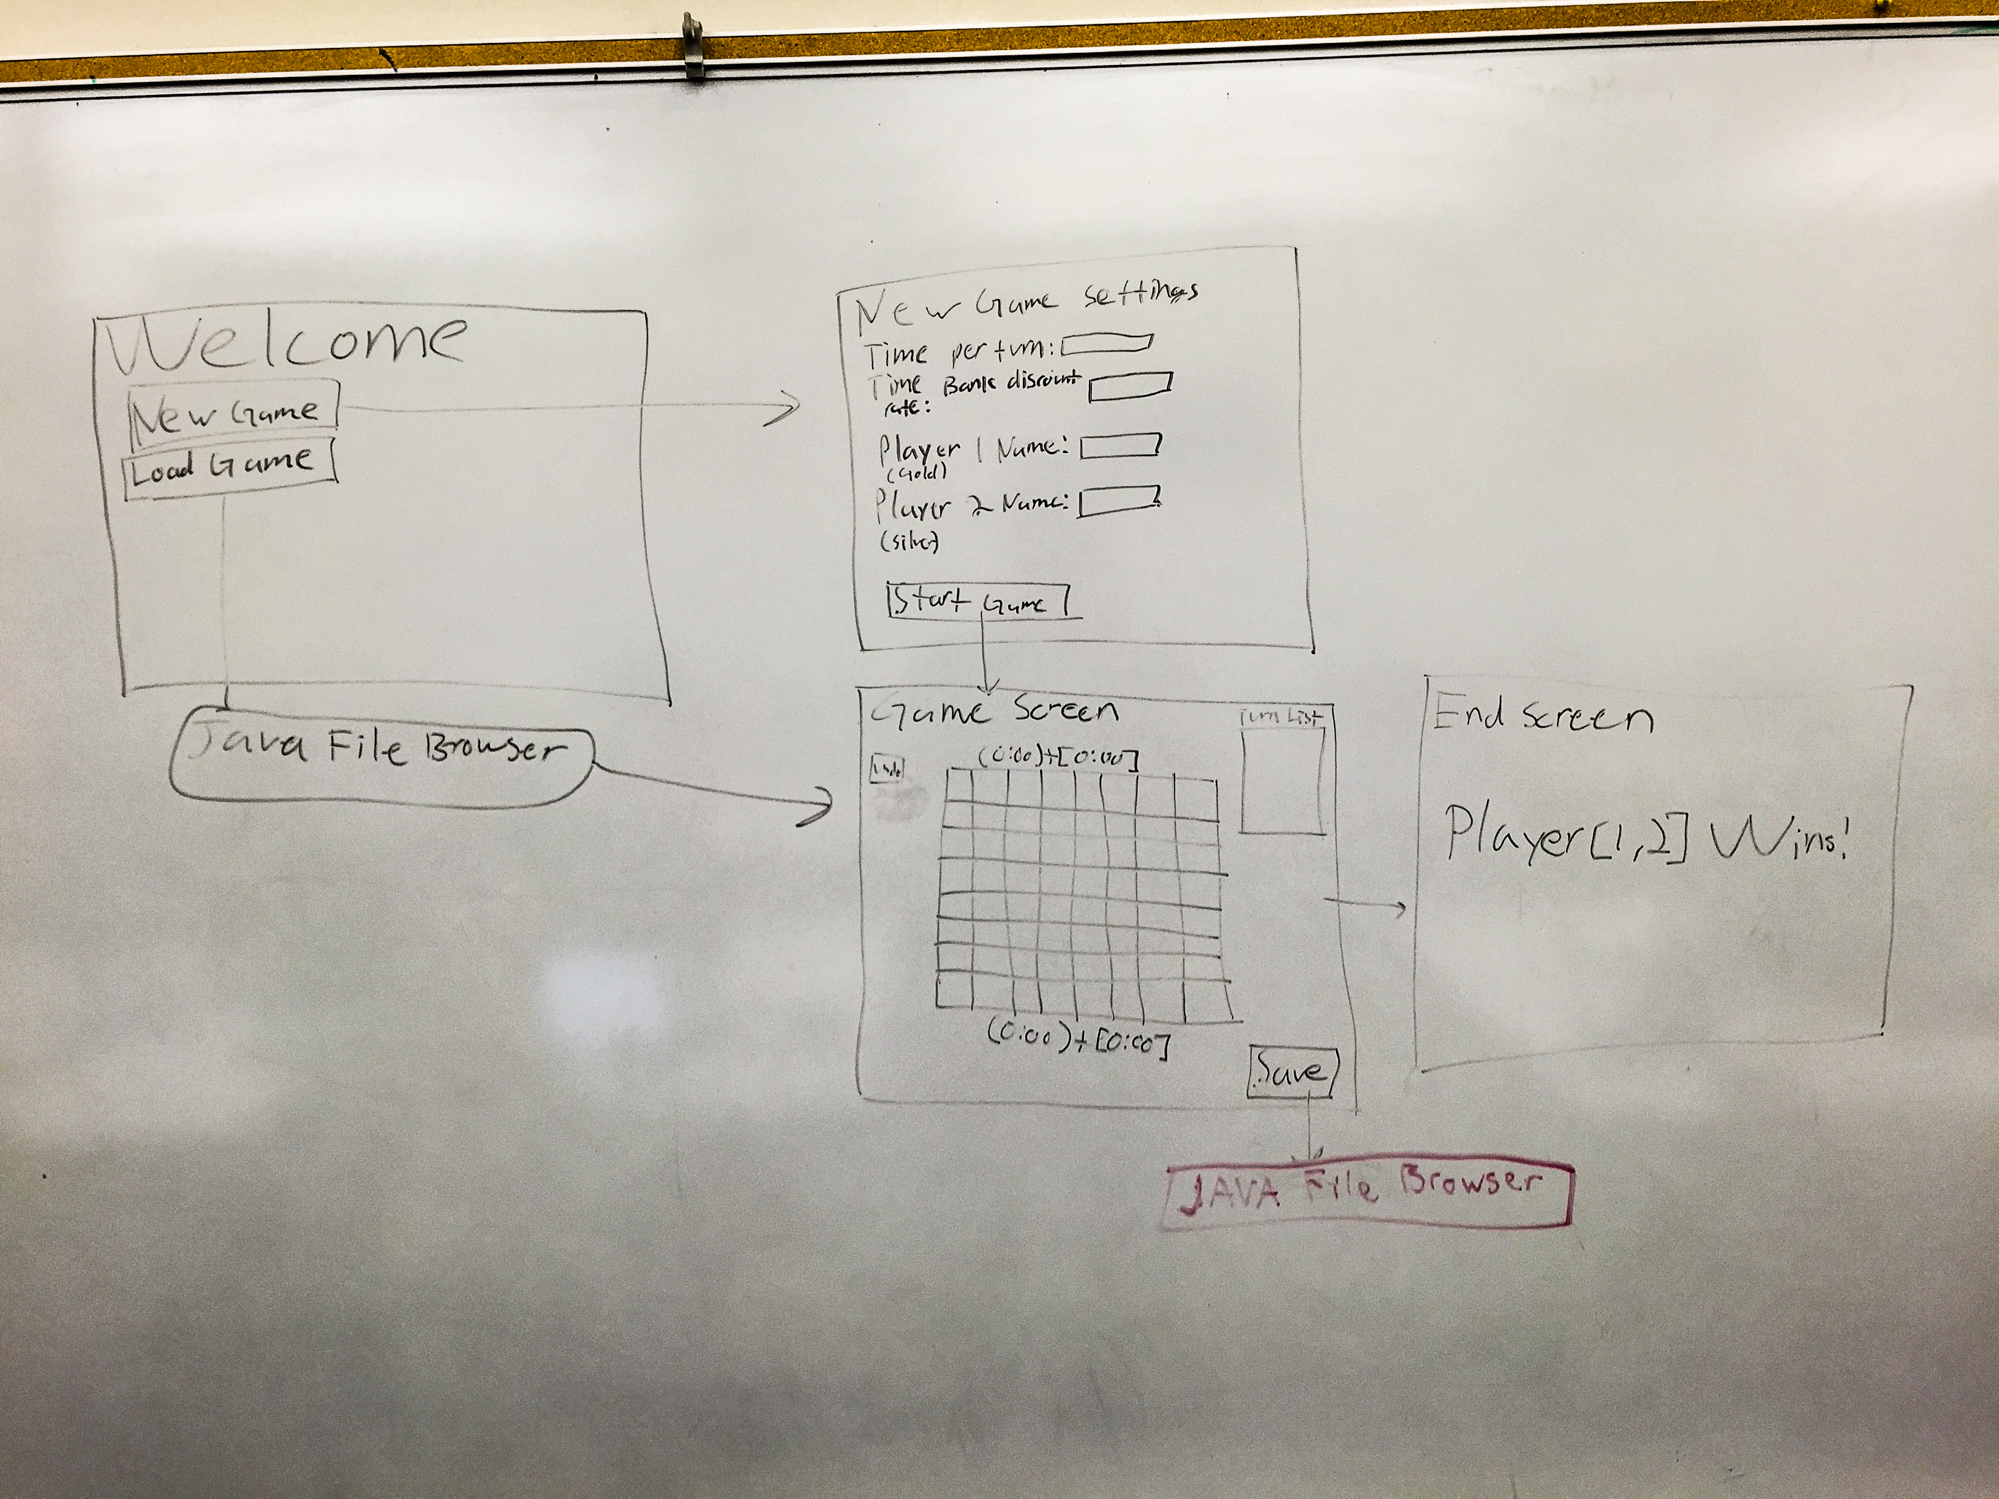 Welcome
New Game
Load Game
Java File Browser
New Game Settings
Time per turn:
Time Bank discount
rate:
Player 1 Name:
(Gold)
Player 2 Name:
(Silver)
Start Game
Game Screen
Turn List
Undo
(0:00)+[0:00]
(0:00)+[0:00]
Save
JAVA File Browser
End Screen
Player[1,2] Wins!